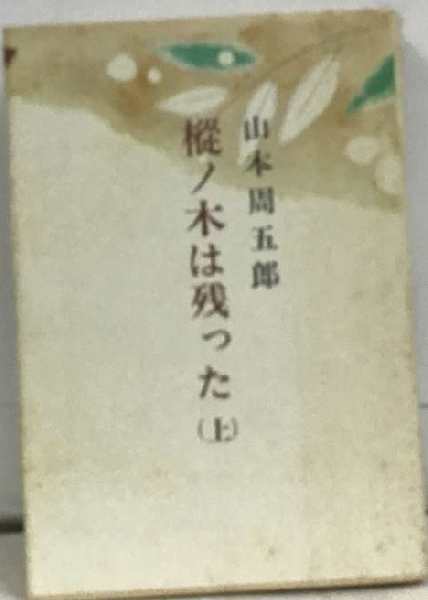 山本周五郎
樅ノ木は残った(上)